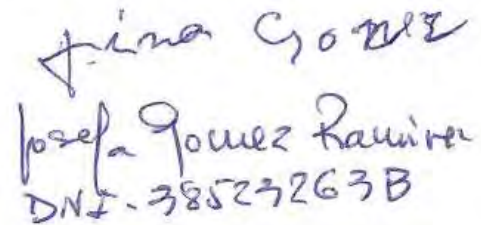 Fina Gomez
Josefa Gomez Ramirez
DNI-38523263B